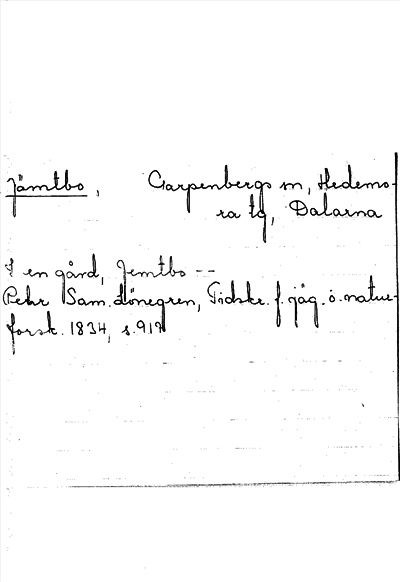 Jämtbo, Garpenbergs sn, Hedemo-
ra tg, Dalarna
i en gård, Jemtbo --
Pehr Sam. Lönegren, Tidskr. f. jäg. o. natur-
forsk. 1834, s.919